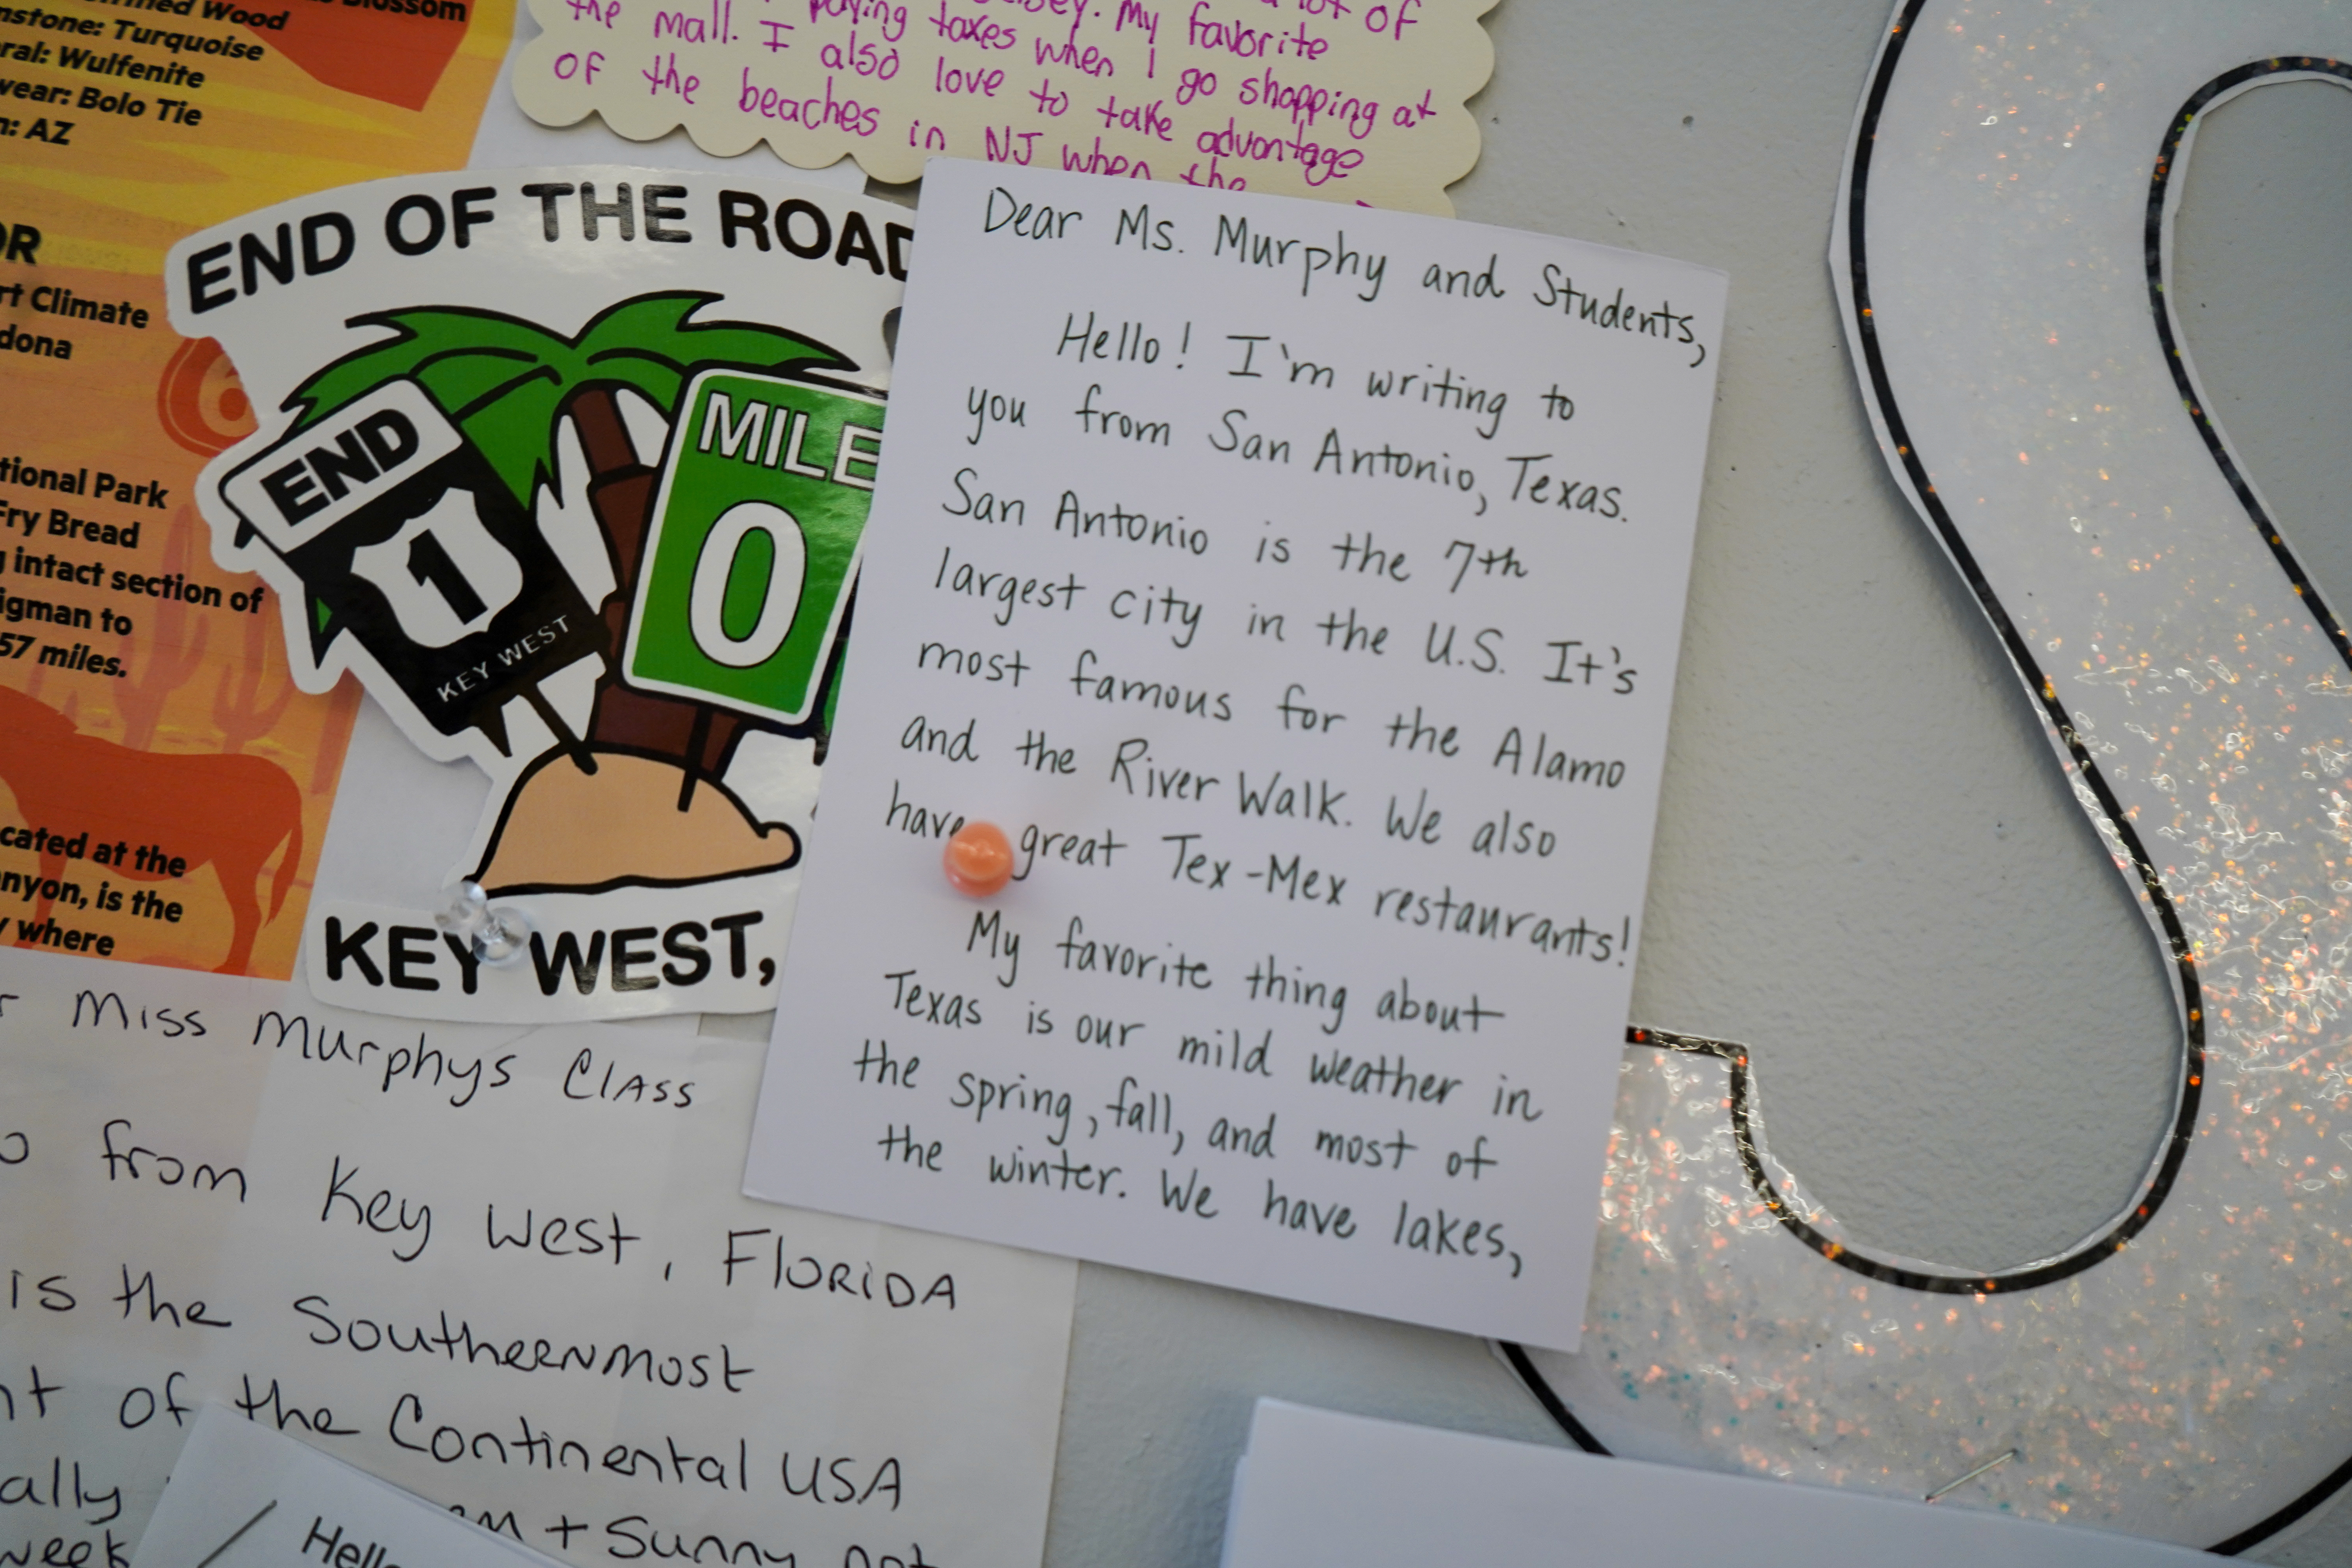 Blossom
Wood
Turquoise
Wulfenite
Bolo Tie
AZ
Climate
National Park
Fry Bread
intact section of
to
57 miles.
at the
is the
where
of
the mall. I paying taxes when I go shopping at
My favorite
of the beaches in NJ when the
I also love to take advantage
END OF THE ROAD
END
1
KEY WEST
MILE
0
KEY WEST,
Dear Ms. Murphy and Students,
Hello! I'm writing to
you from San Antonio, Texas.
San Antonio is the 7th
largest city in the U.S. It's
most famous for the Alamo
and the River Walk. We also
have great Tex-Mex restaurants!
My favorite thing about
Texas is our mild weather in
the spring, fall, and most of
the winter. We have lakes,
Miss Murphys Class
from Key West, Florida
is the Southernmost
of the Continental USA
+ Sunny
week
Hello